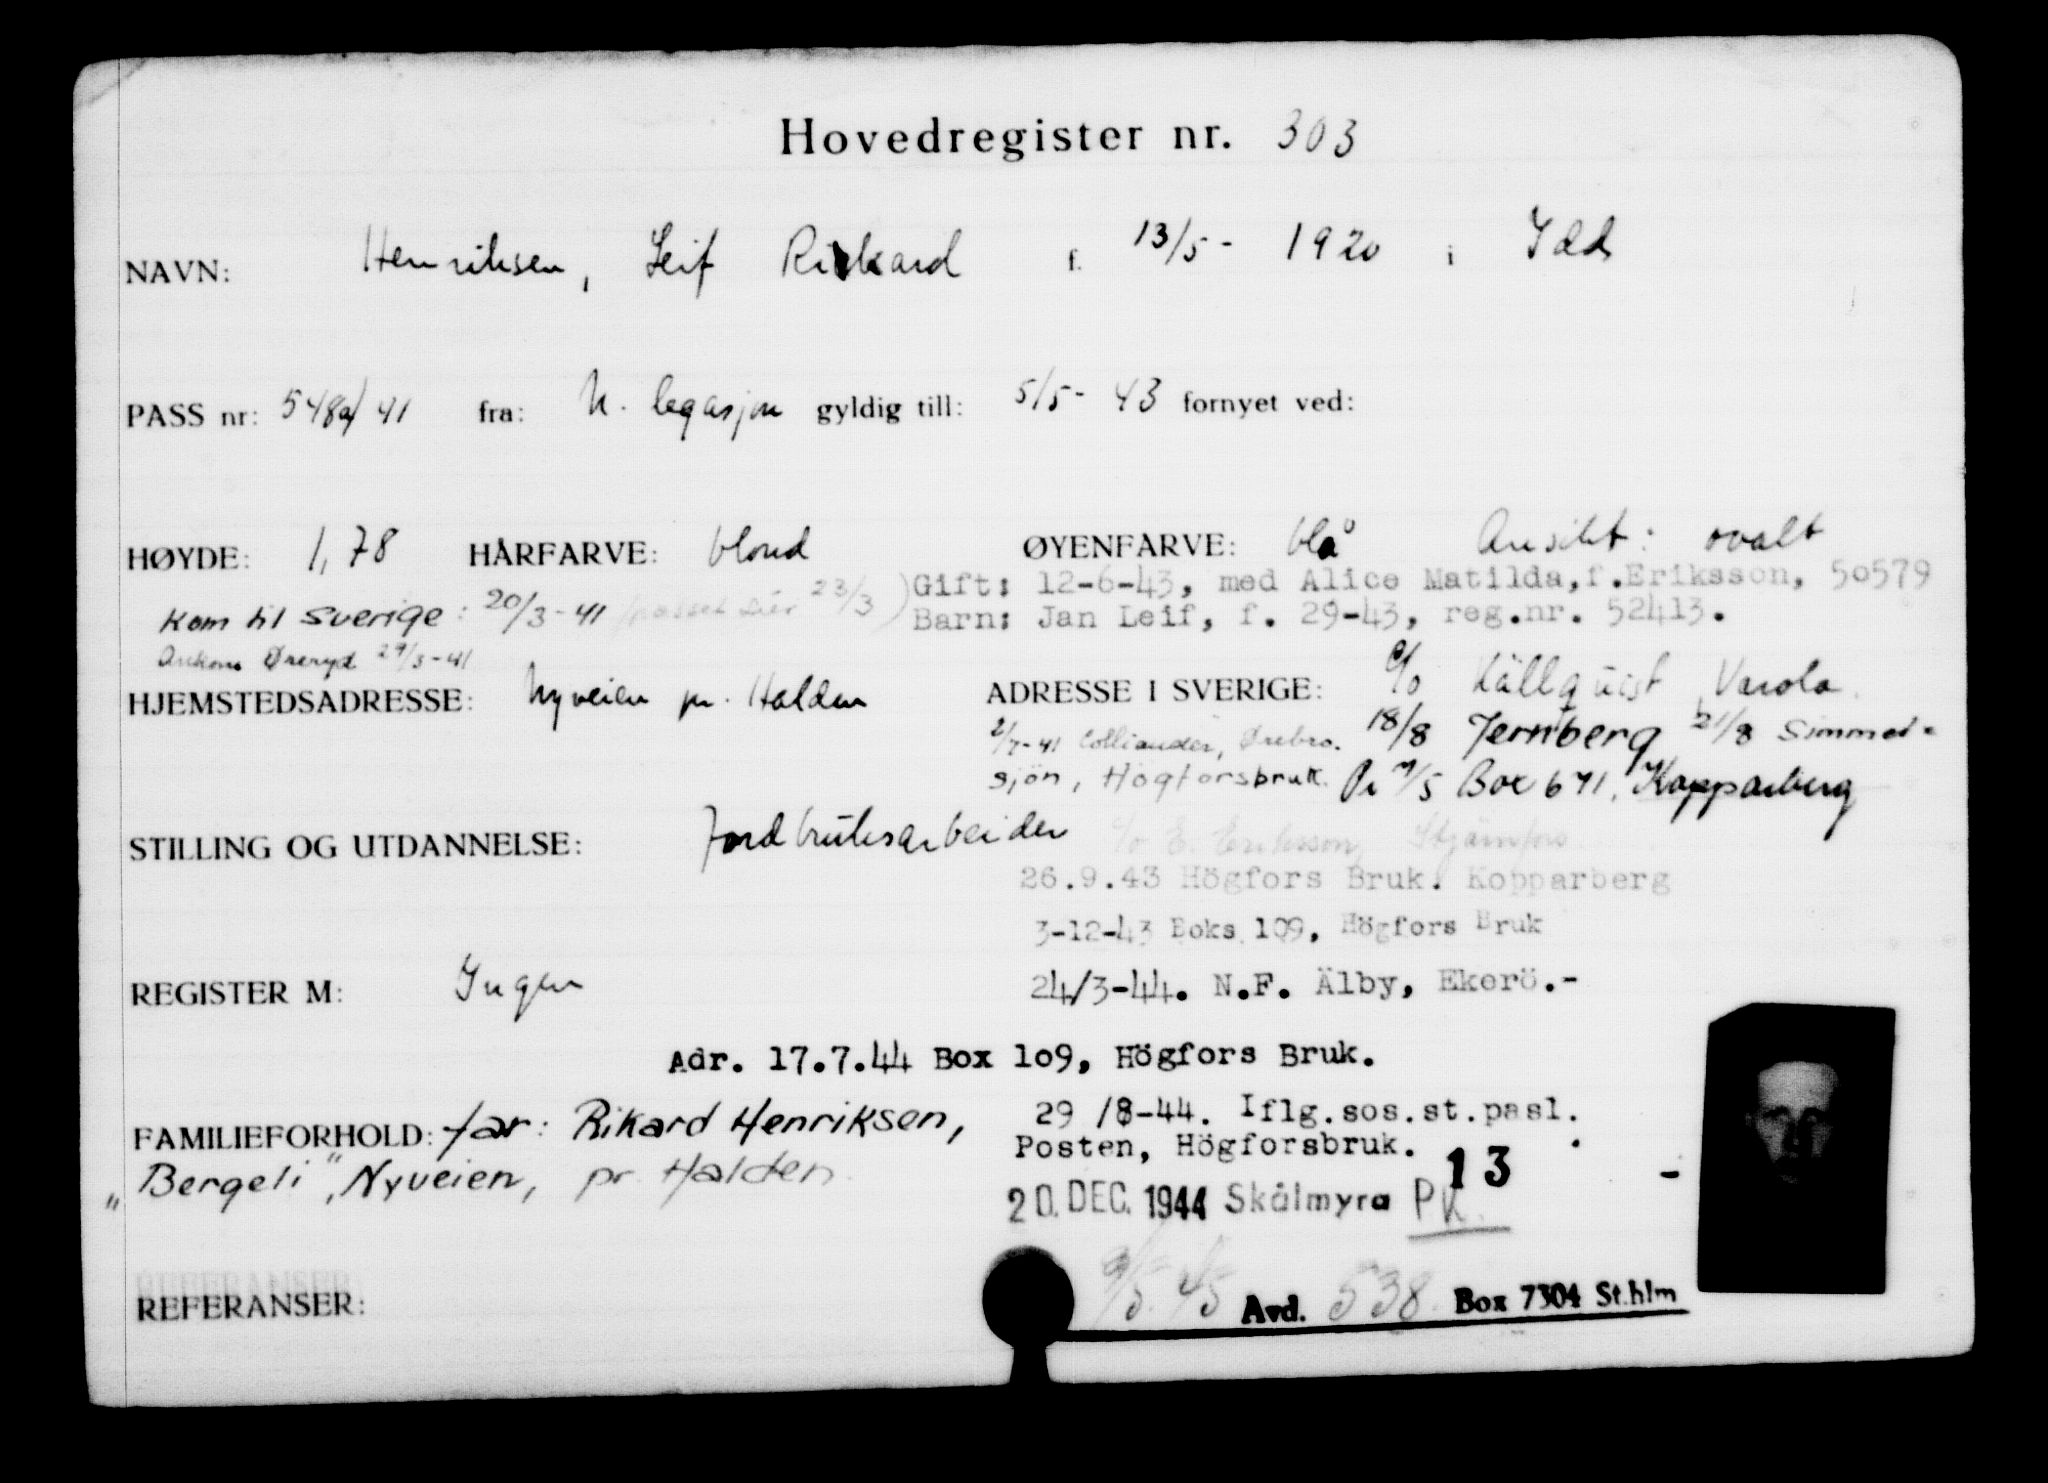 Hovedregister nr. 303
NAVN: Henriksen, Leif Rikard f. 13/5- 1920 i Idd
PASS nr: 548a/41 fra: N. legasjon gyldig till: 5/5- 43 fornyet ved:
HØYDE: 1,78 HÅRFARVE: blond ØYENFARVE: blå Ansikt: ovalt
Gift: 12-6-43, med Alice Matilda, f. Eriksson, 50579
Kom til Sverige: 20/3-41 (passet sier 23/3)
Barn: Jan Leif, f. 29-43, reg.nr. 52413.
Ankom Øreryd 29/3-41
HJEMSTEDSADRESSE: Nyveien pr. Halden
ADRESSE I SVERIGE: c/o Källquist, Varola.
2/7-41 Colliander, Örebro. 18/8 Jernberg 21/8 Simmed-
sjön, Högforsbruk. Pr 7/5 Box 671, Kopparberg
STILLING OG UTDANNELSE: Jordbruksarbeider
c/o E. Eriksson, Stjärnfors
26.9.43 Högfors Bruk. Kopparberg
3-12-43 Boks 109, Högfors Bruk
REGISTER M: Ingen
24/3-44. N.F. Älby, Ekerö.-
Adr. 17.7.44 Box 109, Högfors Bruk.
FAMILIEFORHOLD: far: Rikard Henriksen,
"Bergeli", Nyveien, pr. Halden.
29/8-44. Iflg.sos.st.pasl.
Posten, Högforsbruk.
13
20. DEC. 1944 Skålmyra PK.
REFERANSER:
9/5.45 Avd. 538. Box 7304 St.hlm